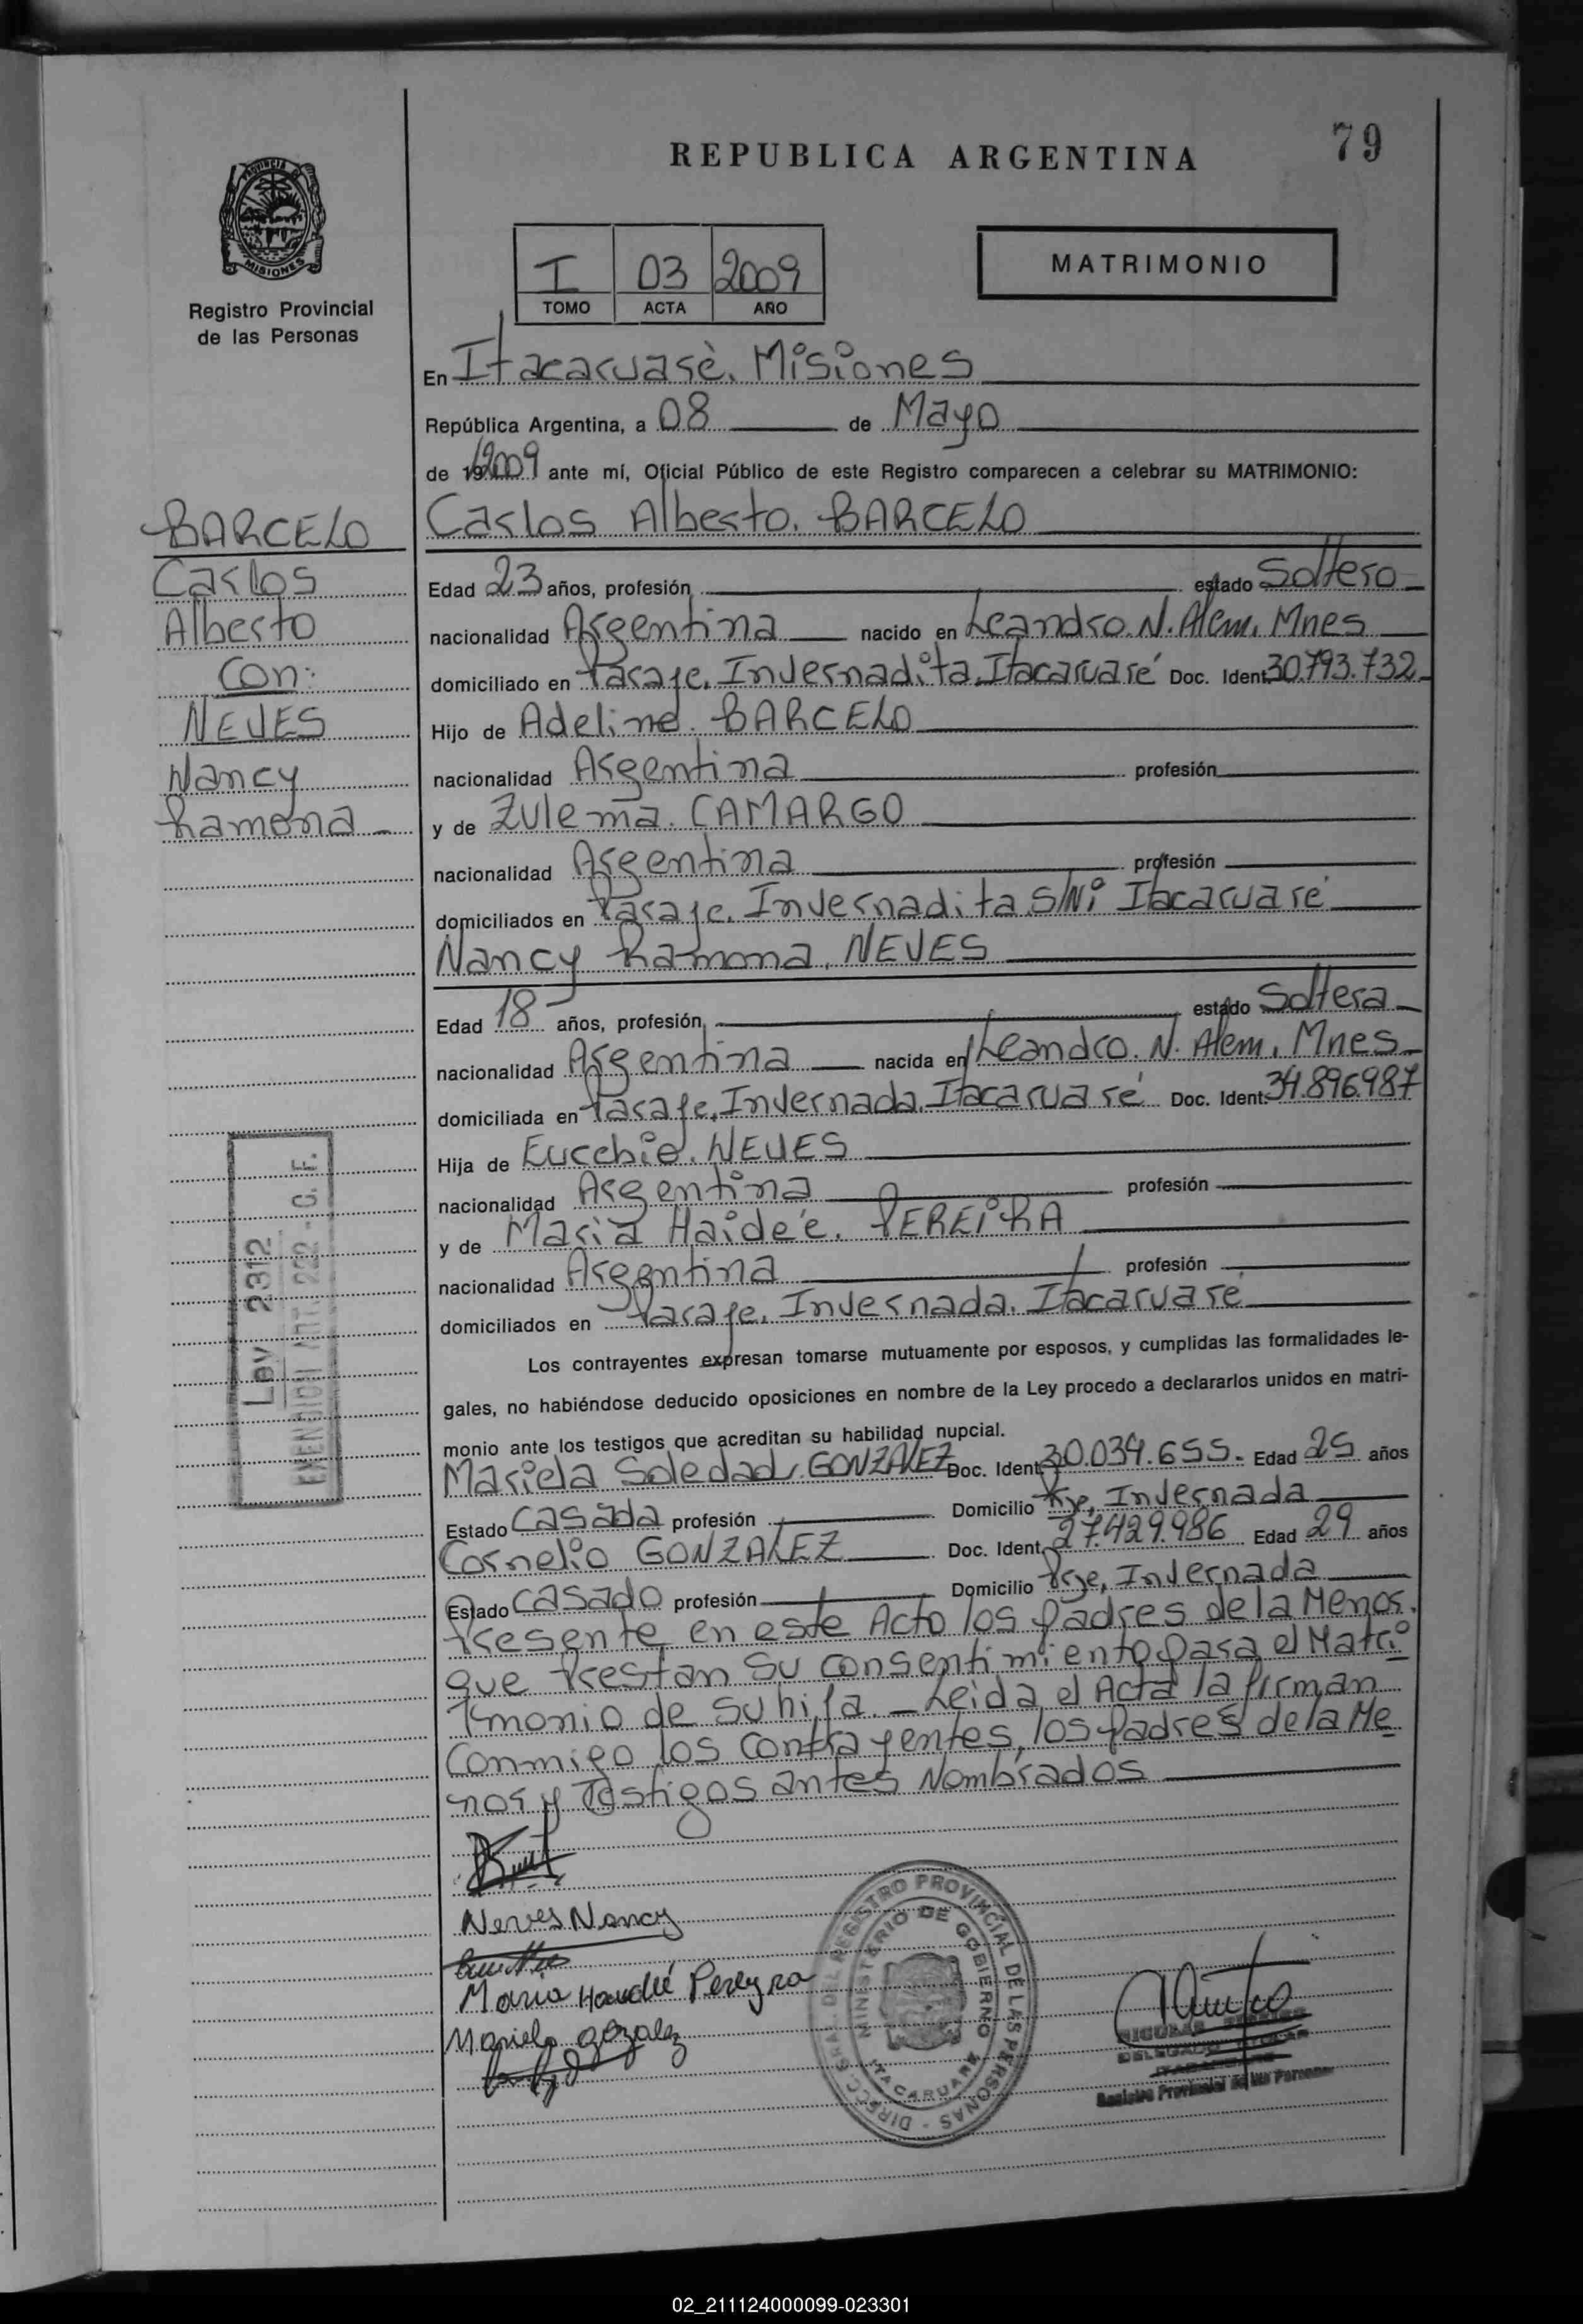 79
REPUBLICA ARGENTINA
PROVINCIA DE
MISIONES
Registro Provincial
de las Personas
I 03 2009
TOMO ACTA AÑO
MATRIMONIO
En Itacaruarè, Misiones
República Argentina, a 08 de Mayo
de 19 2009 ante mí, Oficial Público de este Registro comparecen a celebrar su MATRIMONIO:
BARCELO
Carlos
Alberto
Con:
NEVES
Nancy
Ramona
Carlos Alberto. BARCELO
Edad 23 años, profesión estado Soltero
nacionalidad Argentina nacido en Leandro. N. Alem, Mnes
domiciliado en Paraje, Invernadita, Itacaruaré Doc. Ident. 30.793.732
Hijo de Adelino. BARCELO
nacionalidad Argentina profesión
y de Zulema. CAMARGO
nacionalidad Argentina profesión
domiciliados en Paraje, Invernadita S/Nº Itacaruaré
Nancy Ramona, NEVES
Edad 18 años, profesión estado Soltera
nacionalidad Argentina nacida en Leandro. N. Alem, Mnes
domiciliada en Paraje, Invernada, Itacaruaré Doc. Ident. 34.896.987
Hija de Eucebio. NEVES
nacionalidad Argentina profesión
y de Maria Haideé. PEREIRA
nacionalidad Argentina profesión
domiciliados en Paraje, Invernada, Itacaruaré
Ley 2312
C. F.
Los contrayentes expresan tomarse mutuamente por esposos, y cumplidas las formalidades le-
gales, no habiéndose deducido oposiciones en nombre de la Ley procedo a declararlos unidos en matri-
monio ante los testigos que acreditan su habilidad nupcial.
Mariela Soledad, GONZALEZ Doc. Ident. 30.034.655. Edad 25 años
Estado Casada profesión Domicilio Pje, Invernada
Cornelio GONZALEZ Doc. Ident. 27.429.986 Edad 29 años
Estado Casado profesión Domicilio Prje, Invernada
Presente en este Acto los padres de la Menor.
que Prestan su consentimiento para el Matri
monio de su hija. - Leida el Acta la firman
Conmigo los contrayentes, los padres de la Me
nor y Testigos antes Nombrados
Neves Nancy
Maria Haydeé Pereyra
Mariela gozalez
DIRECC. GRAL. DEL REGISTRO PROVINCIAL DE LAS PERSONAS
MINISTERIO DE GOBIERNO
ITACARUARE
Registro Provincial de las Personas
02_211124000099-023301